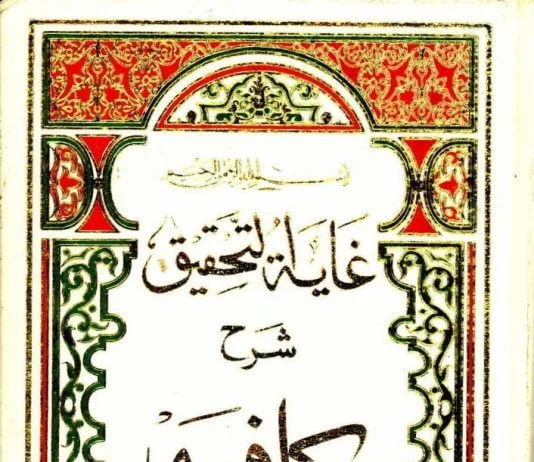 بسم الله الرحمن الرحيم
غاية التحقيق
شرح
كافيه